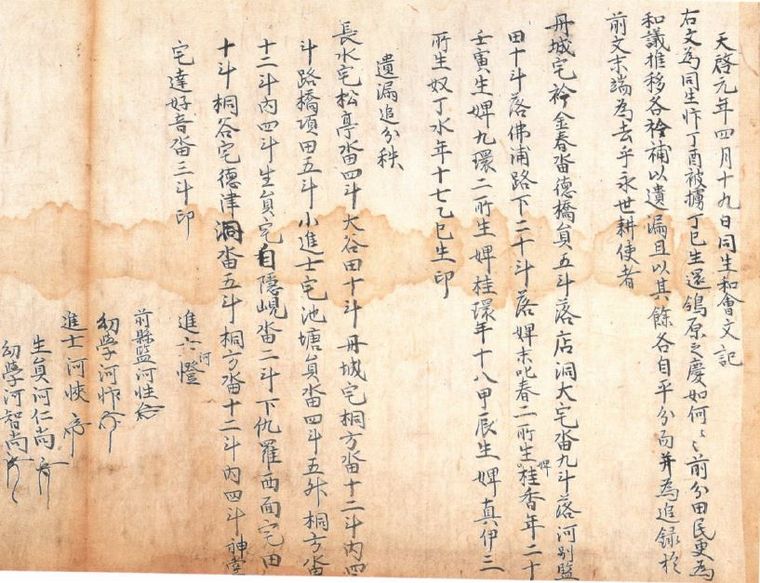 天啓元年四月十九日同生和會文記
右文為同生忭丁酉被擄丁巳生還鴒原之慶如何〻前分田民更為
和議推移各衿補以遺漏且以其餘各自平分而并為追録於
前文末端為去乎永世耕使者
丹城宅衿金春畓德橋員五斗落店洞大宅畓九斗落河別監
田十斗落佛浦路下二十斗落婢末叱春二所生婢桂香年二十
壬寅生婢九環二所生婢桂環年十八甲辰生婢真伊三
所生奴丁水年十七乙巳生印
遺漏追分秩
長水宅松亭畓四斗大谷田十斗丹城宅桐方畓十二斗內四
斗路橋項田五斗小進士宅池塘員畓四斗五升桐方畓
十二斗內四斗生員宅自隱峴畓二斗下仇羅西面宅田
十斗桐谷宅德津洞畓五斗桐方畓十二斗內四斗神堂
宅達好音畓三斗印
進士河憕
前縣監河惺
幼學河忭
進士河悏
生員河仁尚
幼學河智尚